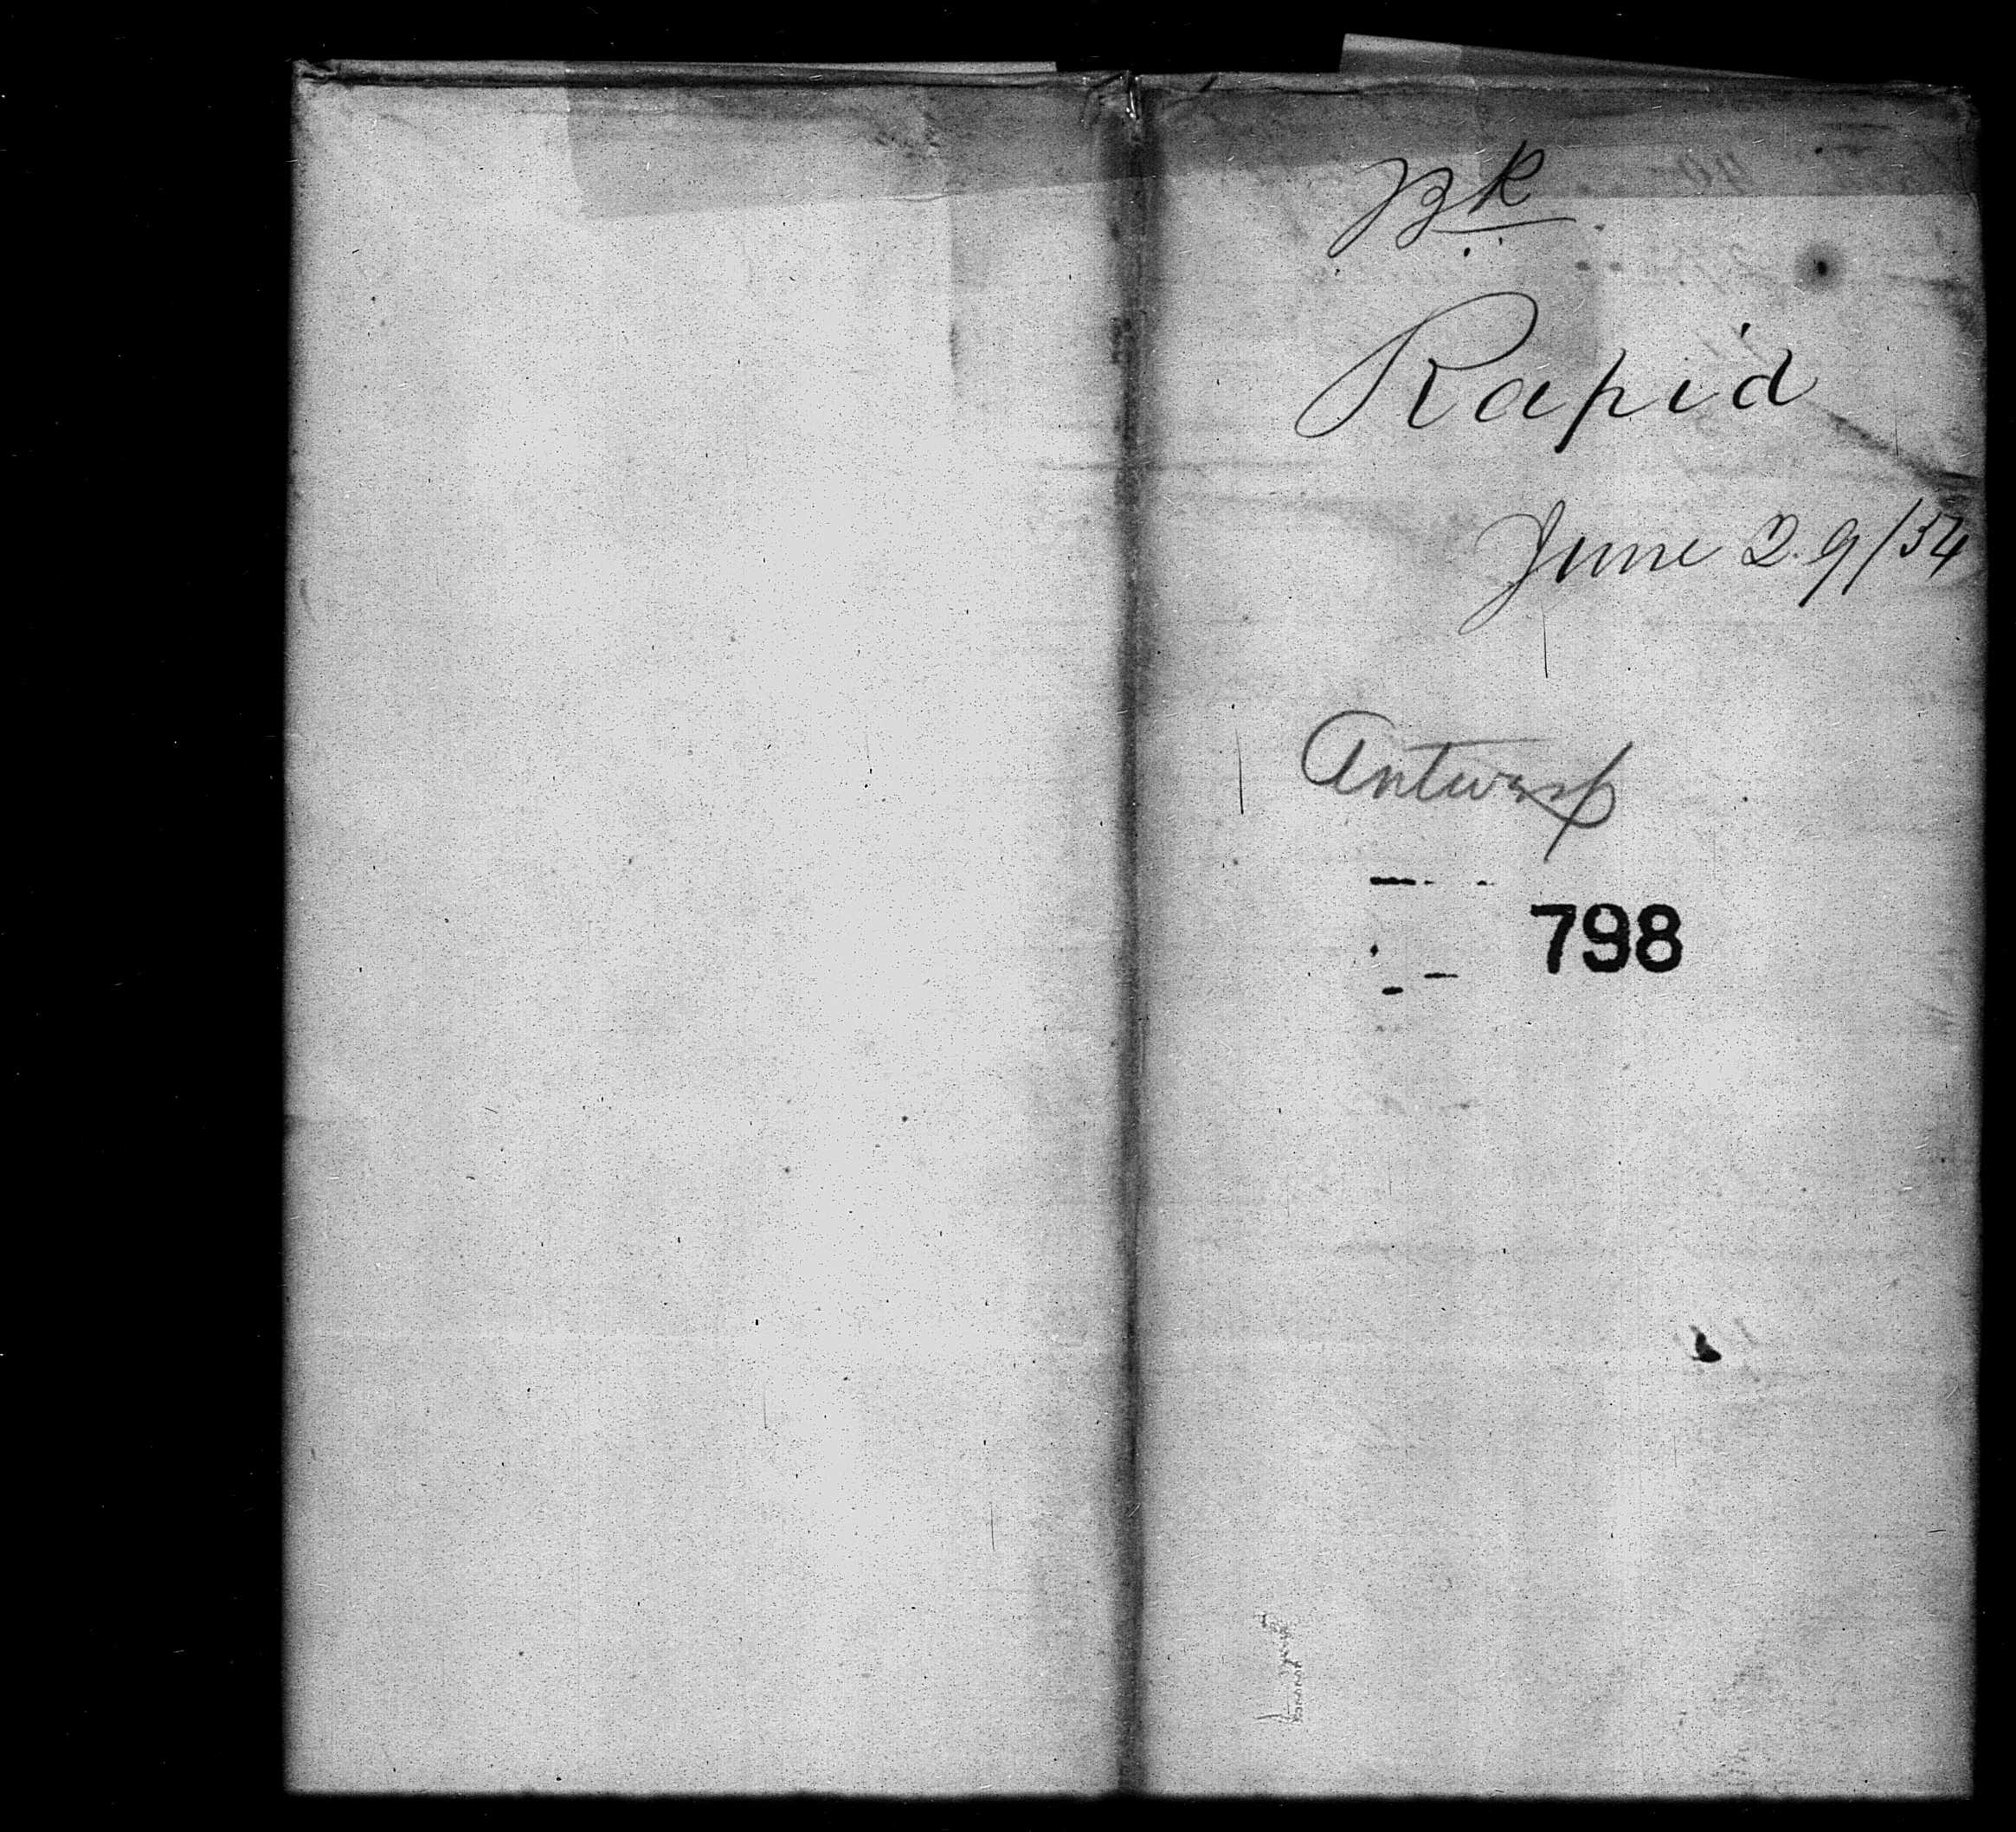 Bk
Rapid
June 29/54
Antwerp
798